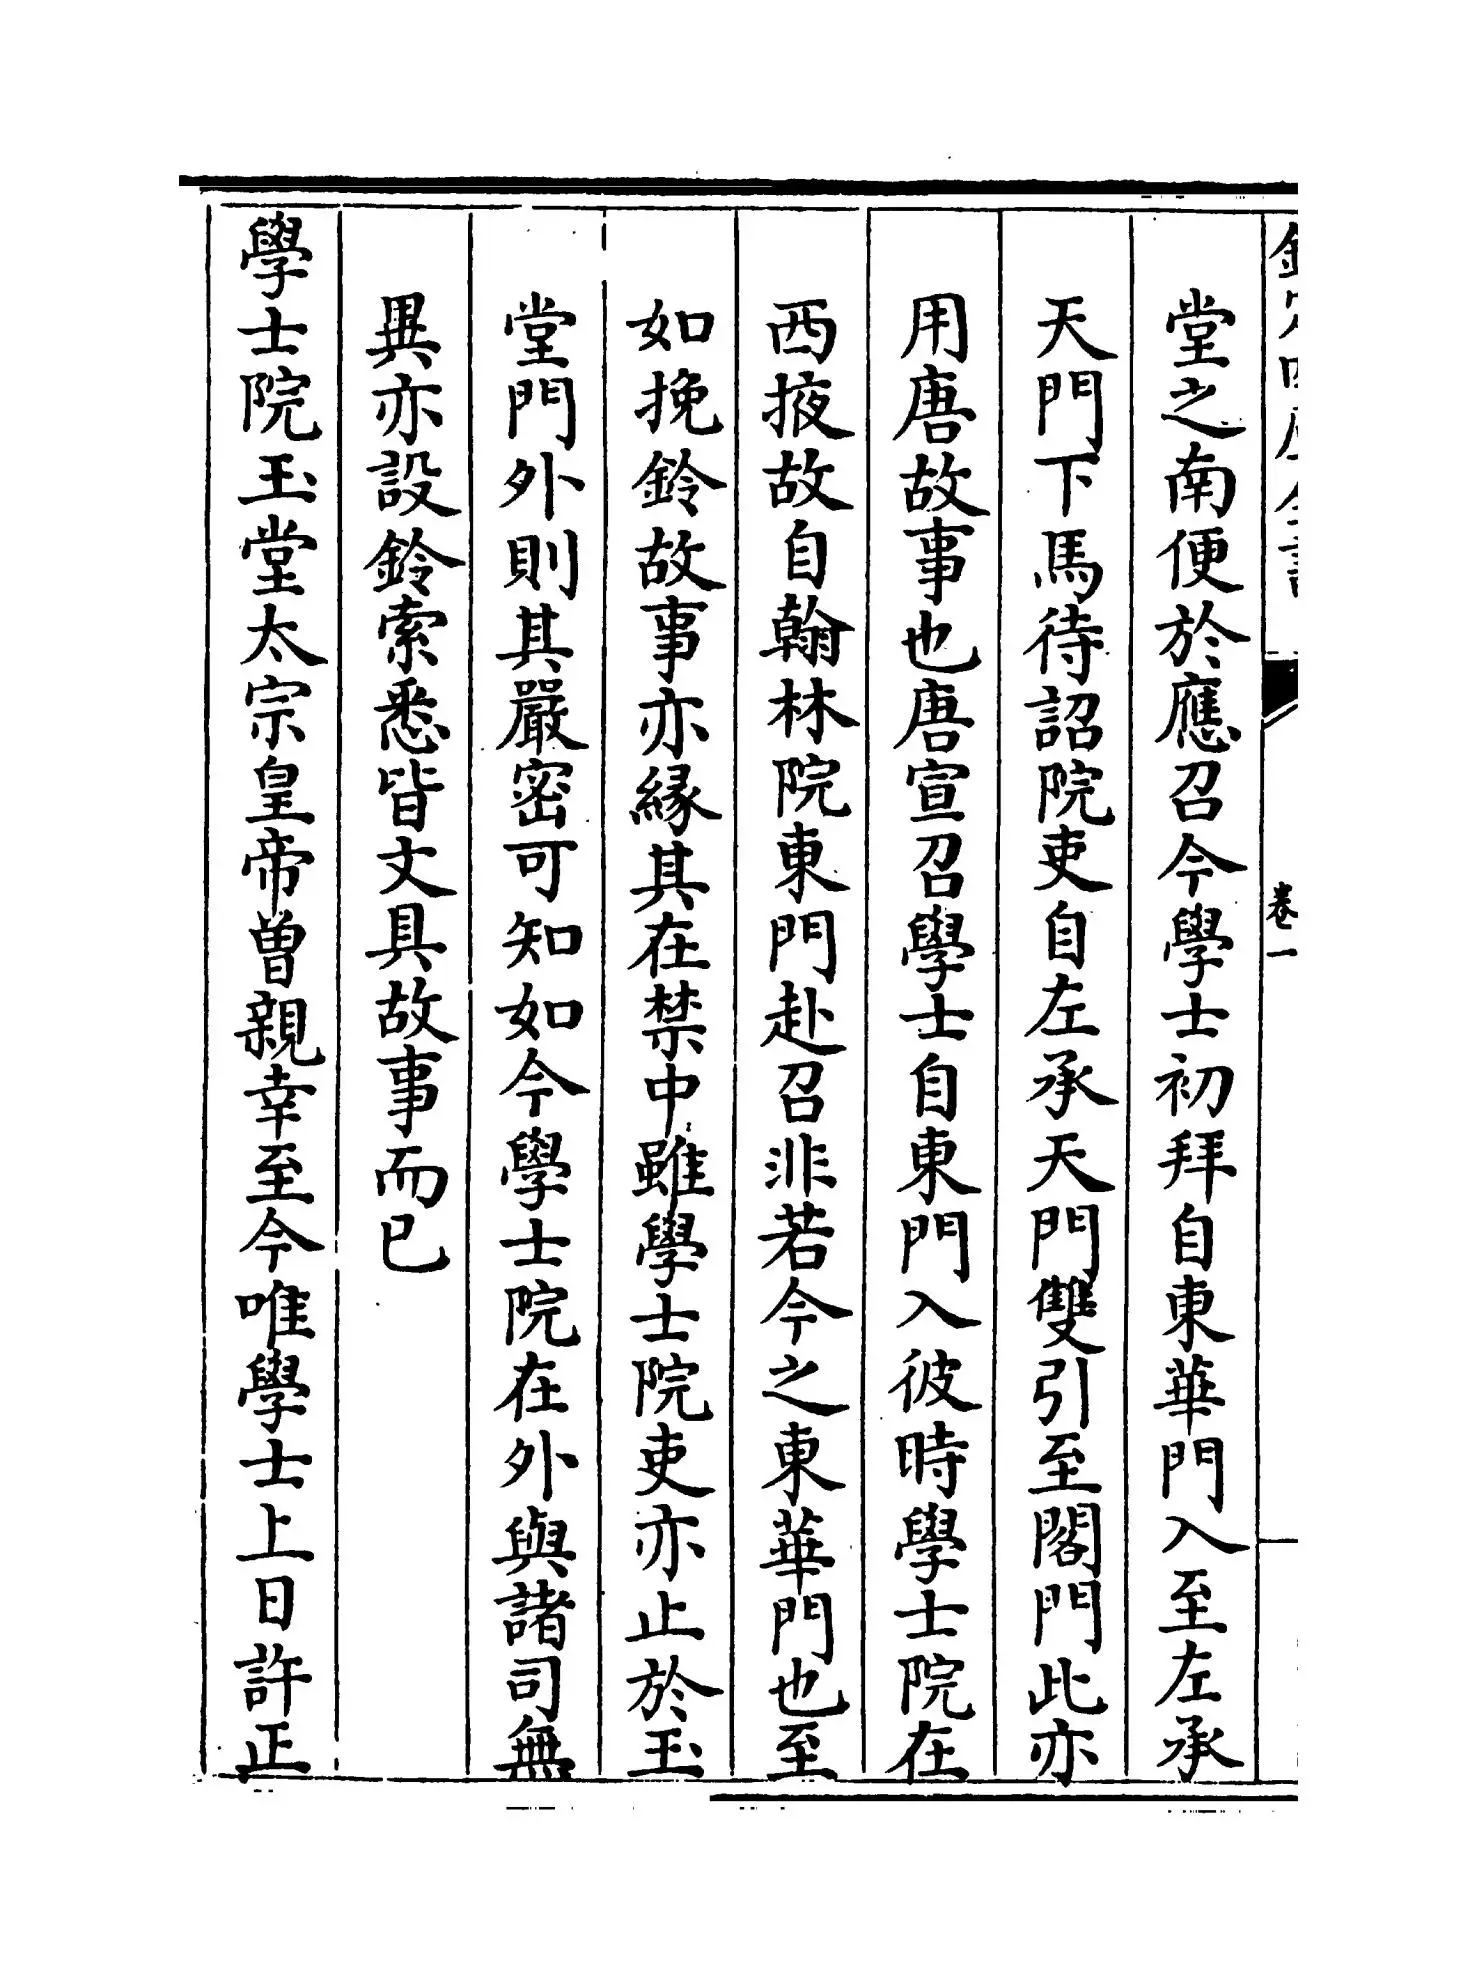 欽定四庫全書
卷一
堂之南便於應召今學士初拜自東華門入至左承
天門下馬待詔院吏自左承天門雙引至閤門此亦
用唐故事也唐宣召學士自東門入彼時學士院在
西掖故自翰林院東門赴召非若今之東華門也至
如挽鈴故事亦緣其在禁中雖學士院吏亦止於玉
堂門外則其嚴密可知如今學士院在外與諸司無
異亦設鈴索悉皆文具故事而已
學士院玉堂太宗皇帝曽親幸至今唯學士上日許正